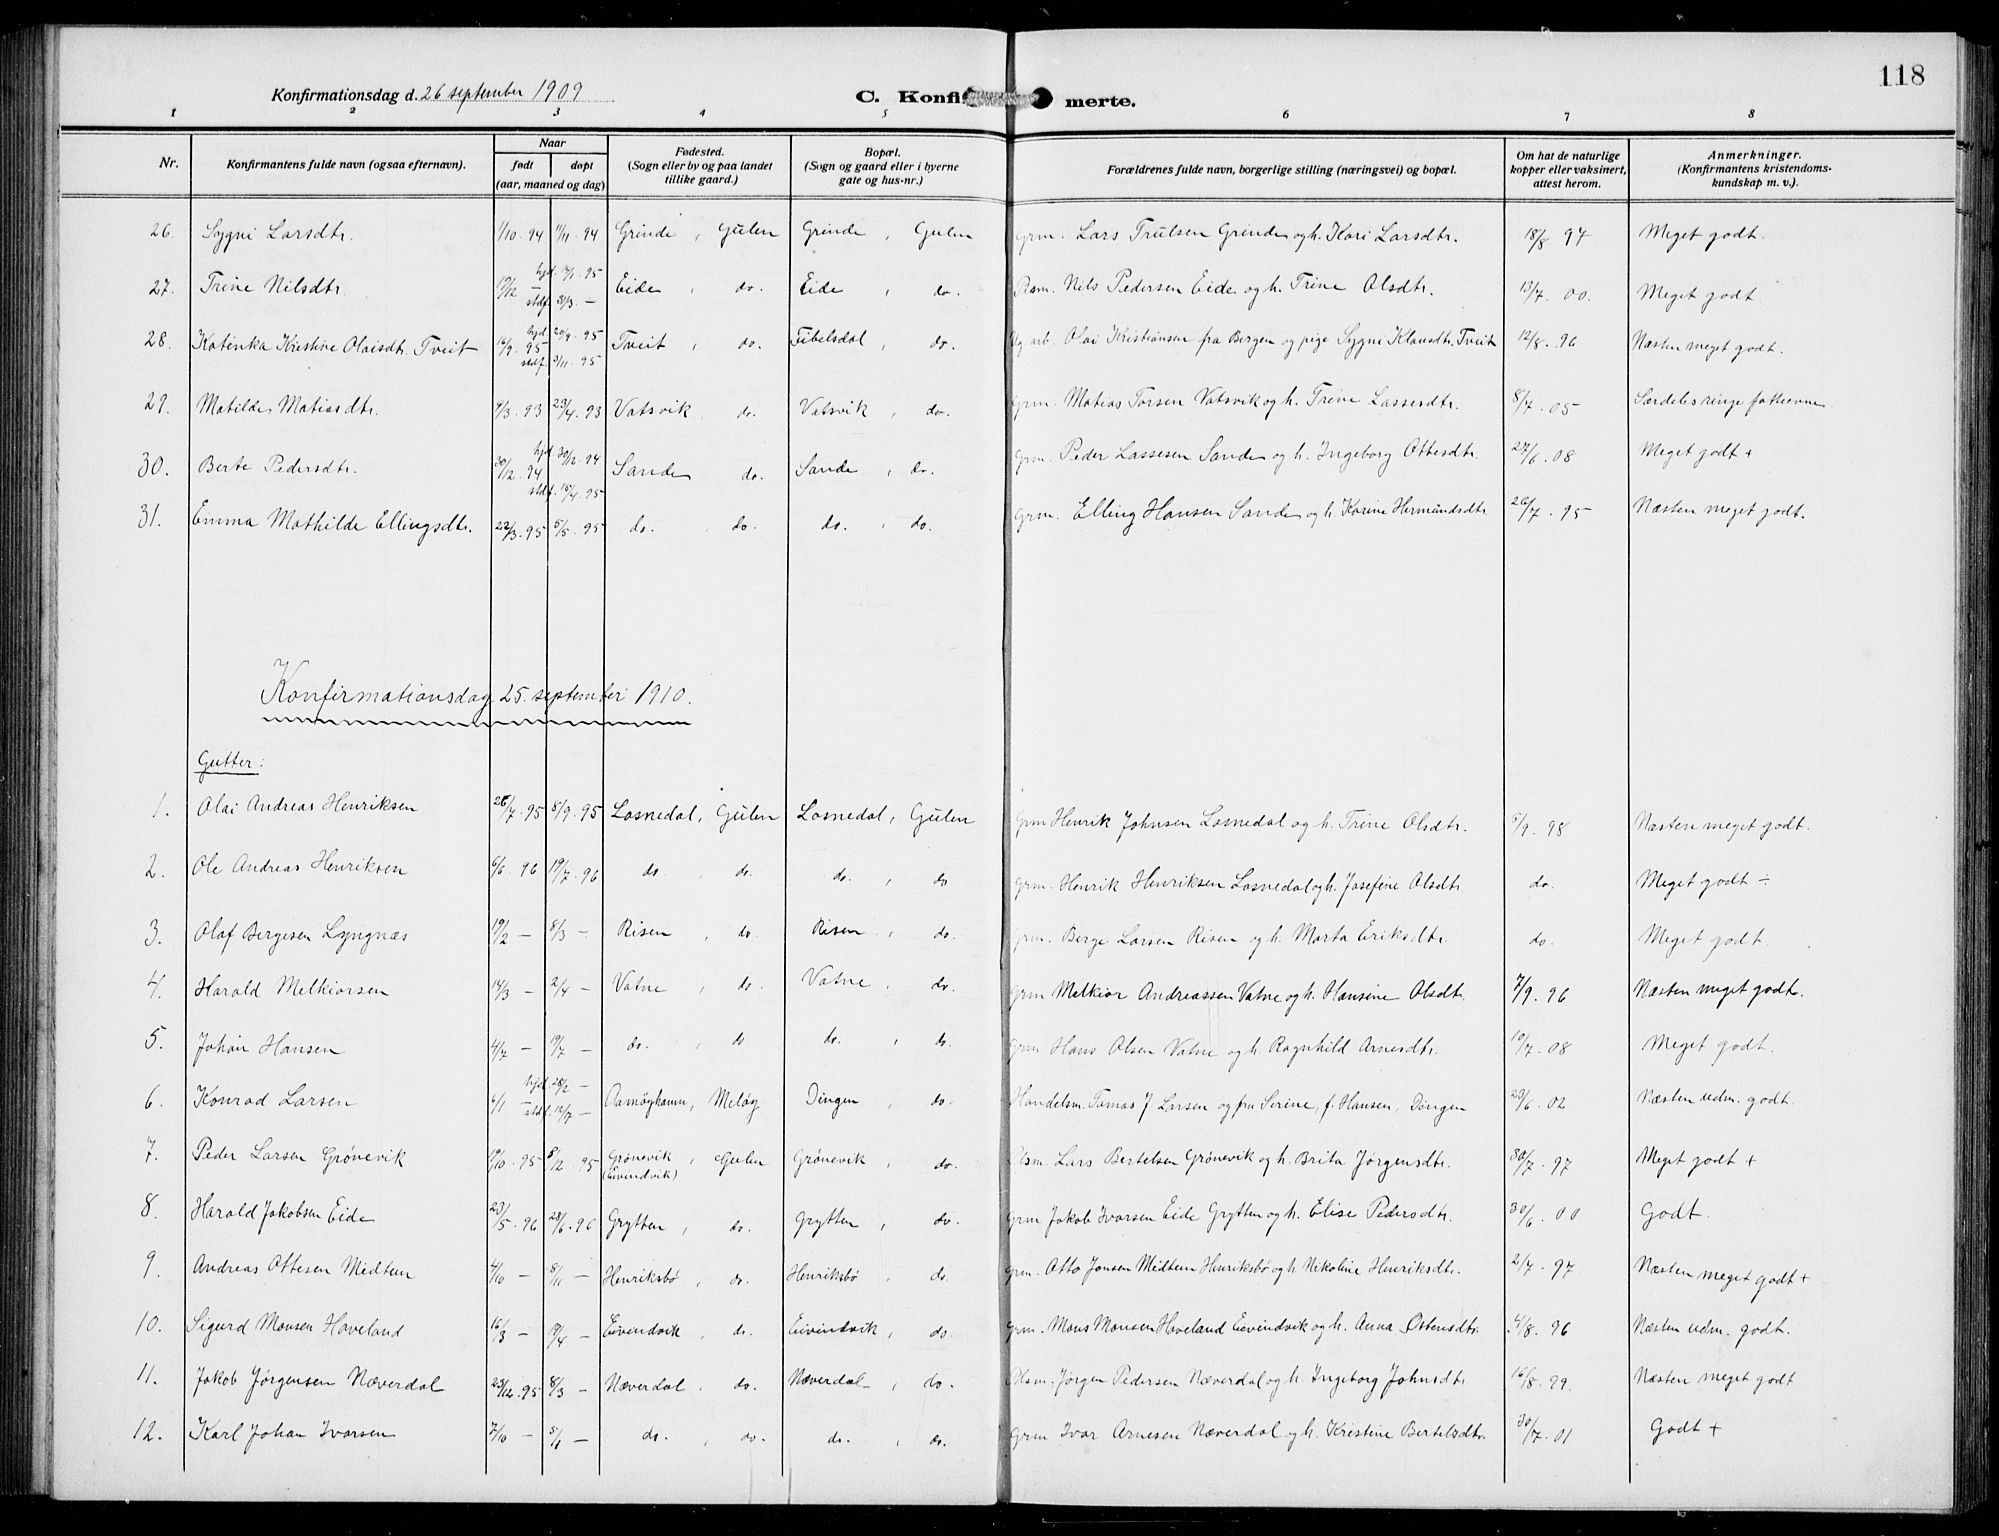 118
Konfirmationsdag d. 26 september 1909
C. Konfirmerte.
1 2 3 4 5 6 7 8
Nr. Konfirmantens fulde navn (ogsaa efternavn). Naar født døpt (aar, maaned og dag) Fødested. (Sogn eller by og paa landet tillike gaard.) Bopæl. (Sogn og gaard eller i byerne gate og hus-nr.) Forældrenes fulde navn, borgerlige stilling (næringsvei) og bopæl. Om hat de naturlige kopper eller vaksinert, attest herom. Anmerkninger. (Konfirmantens kristendomskundskap m. v.).
26. Sygni Larsdtr. 1/10.94 11/11.94 Grinde, Gulen Grinde, Gulen Grm. Lars Trulsen Grinde og h. Kari Larsdtr. 18/8 97 Meget godt.
27. Trine Nilsdtr. 19/12 — hjd. 7/1.95 stdf. 31/3 — Eide, do. Eide, do. Nils Pedersen Eide og h. Trine Olsdtr. 13/7.00. Meget godt
28. Katinka Kristine Olaisdtr. Tveit 16/9.95 hjd. 20/9.95 stdf. 3/11.95 Tveit, do. Fibelsdal, do. Ug. arb. Olai Kristiansen fra Bergen og pige Sygni Klausdtr. Tveit 12/8.96 Næsten meget godt.
29. Matilde Matiasdtr. 9/3.93 23/4.93 Vatsvik, do. Vatsvik, do. Grm. Matias Torsen Vatsvik og h. Trine Lassesdtr. 8/7.05 Særdeles ringe fatteevne
30. Berte Pedersdtr. 30/12.94 hjd. 30/12.94 stdf. 15/4.95 Sande do. Sande, do. Grm. Peder Lassesen Sande og h. Ingeborg Ottesdtr. 27/6.08 Meget godt +
31. Emma Mathilde Ellingsdtr. 22/3.95 5/5.95 do. do. do. do. Grm. Elling Hansen Sande og h. Karine Hermundsdtr 26/7.95 Næsten meget godt.
Konfirmationsdag 25. september 1910.
Gutter:
1. Olai Andreas Henriksen 26/7.95 8/9.95 Losnedal, Gulen Losnedal, Gulen Grm Henrik Johnsen Losnedal og h. Trine Olsdtr. 5/9.98 Næsten meget godt.
2. Ole Andreas Henriksen 6/6.96 19/7.96 do. do. do. do Grm. Henrik Henriksen Losnedal og h. Josefine Olsdtr do. Meget godt ÷
3. Olaf Bergesen Lyngnæs 19/2 — 8/3 — Risen, do. Risen, do. Grm. Berge Larsen Risen og h. Marta Eriksdtr. do. Meget godt.
4. Harald Melkiorsen 14/3 — 2/4 — Vatne, do. Vatne, do. Grm Melkior Andreassen Vatne og h. Hansine Olsdtr. 7/9.96 Næsten meget godt.
5. Johan Hansen 4/7 — 19/7 — do. do do. do. Grm. Hans Olsen Vatne og h. Ragnhild Arnesdtr. 10/7.08 Meget godt.
6. Konrad Larsen 6/1 — hjd. 28/2 — stdf. 12/7 — Aamøyhamn, Meløy Dingen, do. Handelsm. Tomas J. Larsen og fru Serine, f. Hansen, Dingen 23/6.02 Næsten udm. godt.
7. Peder Larsen Grønevik 19/10.95 8/12.95 Grønevik, Gulen (Eivindvik) Grønevik, do. Plsm. Lars Bertelsen Grønevik og h. Brita Jørgensdtr. 30/7.97 Meget godt +
8. Harald Jakobsen Eide 23/5.96 28/6.96 Grytten, do. Grytten, do. Grm Jakob Ivarsen Eide Grytten og h. Elise Pedersdtr. 30/6.00 Godt.
9. Andreas Ottesen Midtun 4/10 — 8/11 — Henriksbø, do. Henriksbø, do. Grm. Otto Jonsen Midtun Henriksbø og h. Nikoline Henriksdtr. 2/7.97 Næsten meget godt +
10. Sigurd Monsen Haveland 16/3 — 19/4 — Eivendvik, do. Eivindvik, do. Grm. Mons Monsen Haveland Eivindvik og h. Anna Ottensdtr. 4/8.96 Næsten udm. godt.
11. Jakob Jørgensen Næverdal 23/12.95 8/3 — Næverdal, do. Næverdal, do. Plsm. Jørgen Pedersen Næverdal og h. Ingeborg Johnsdtr. 16/8.99. Næsten meget godt
12. Karl Johan Ivarsen 7/10 — — do., do. do., do. Grm Ivar Arnesen Næverdal og h. Kristine Bertelsdtr. 30/7.01 Godt +